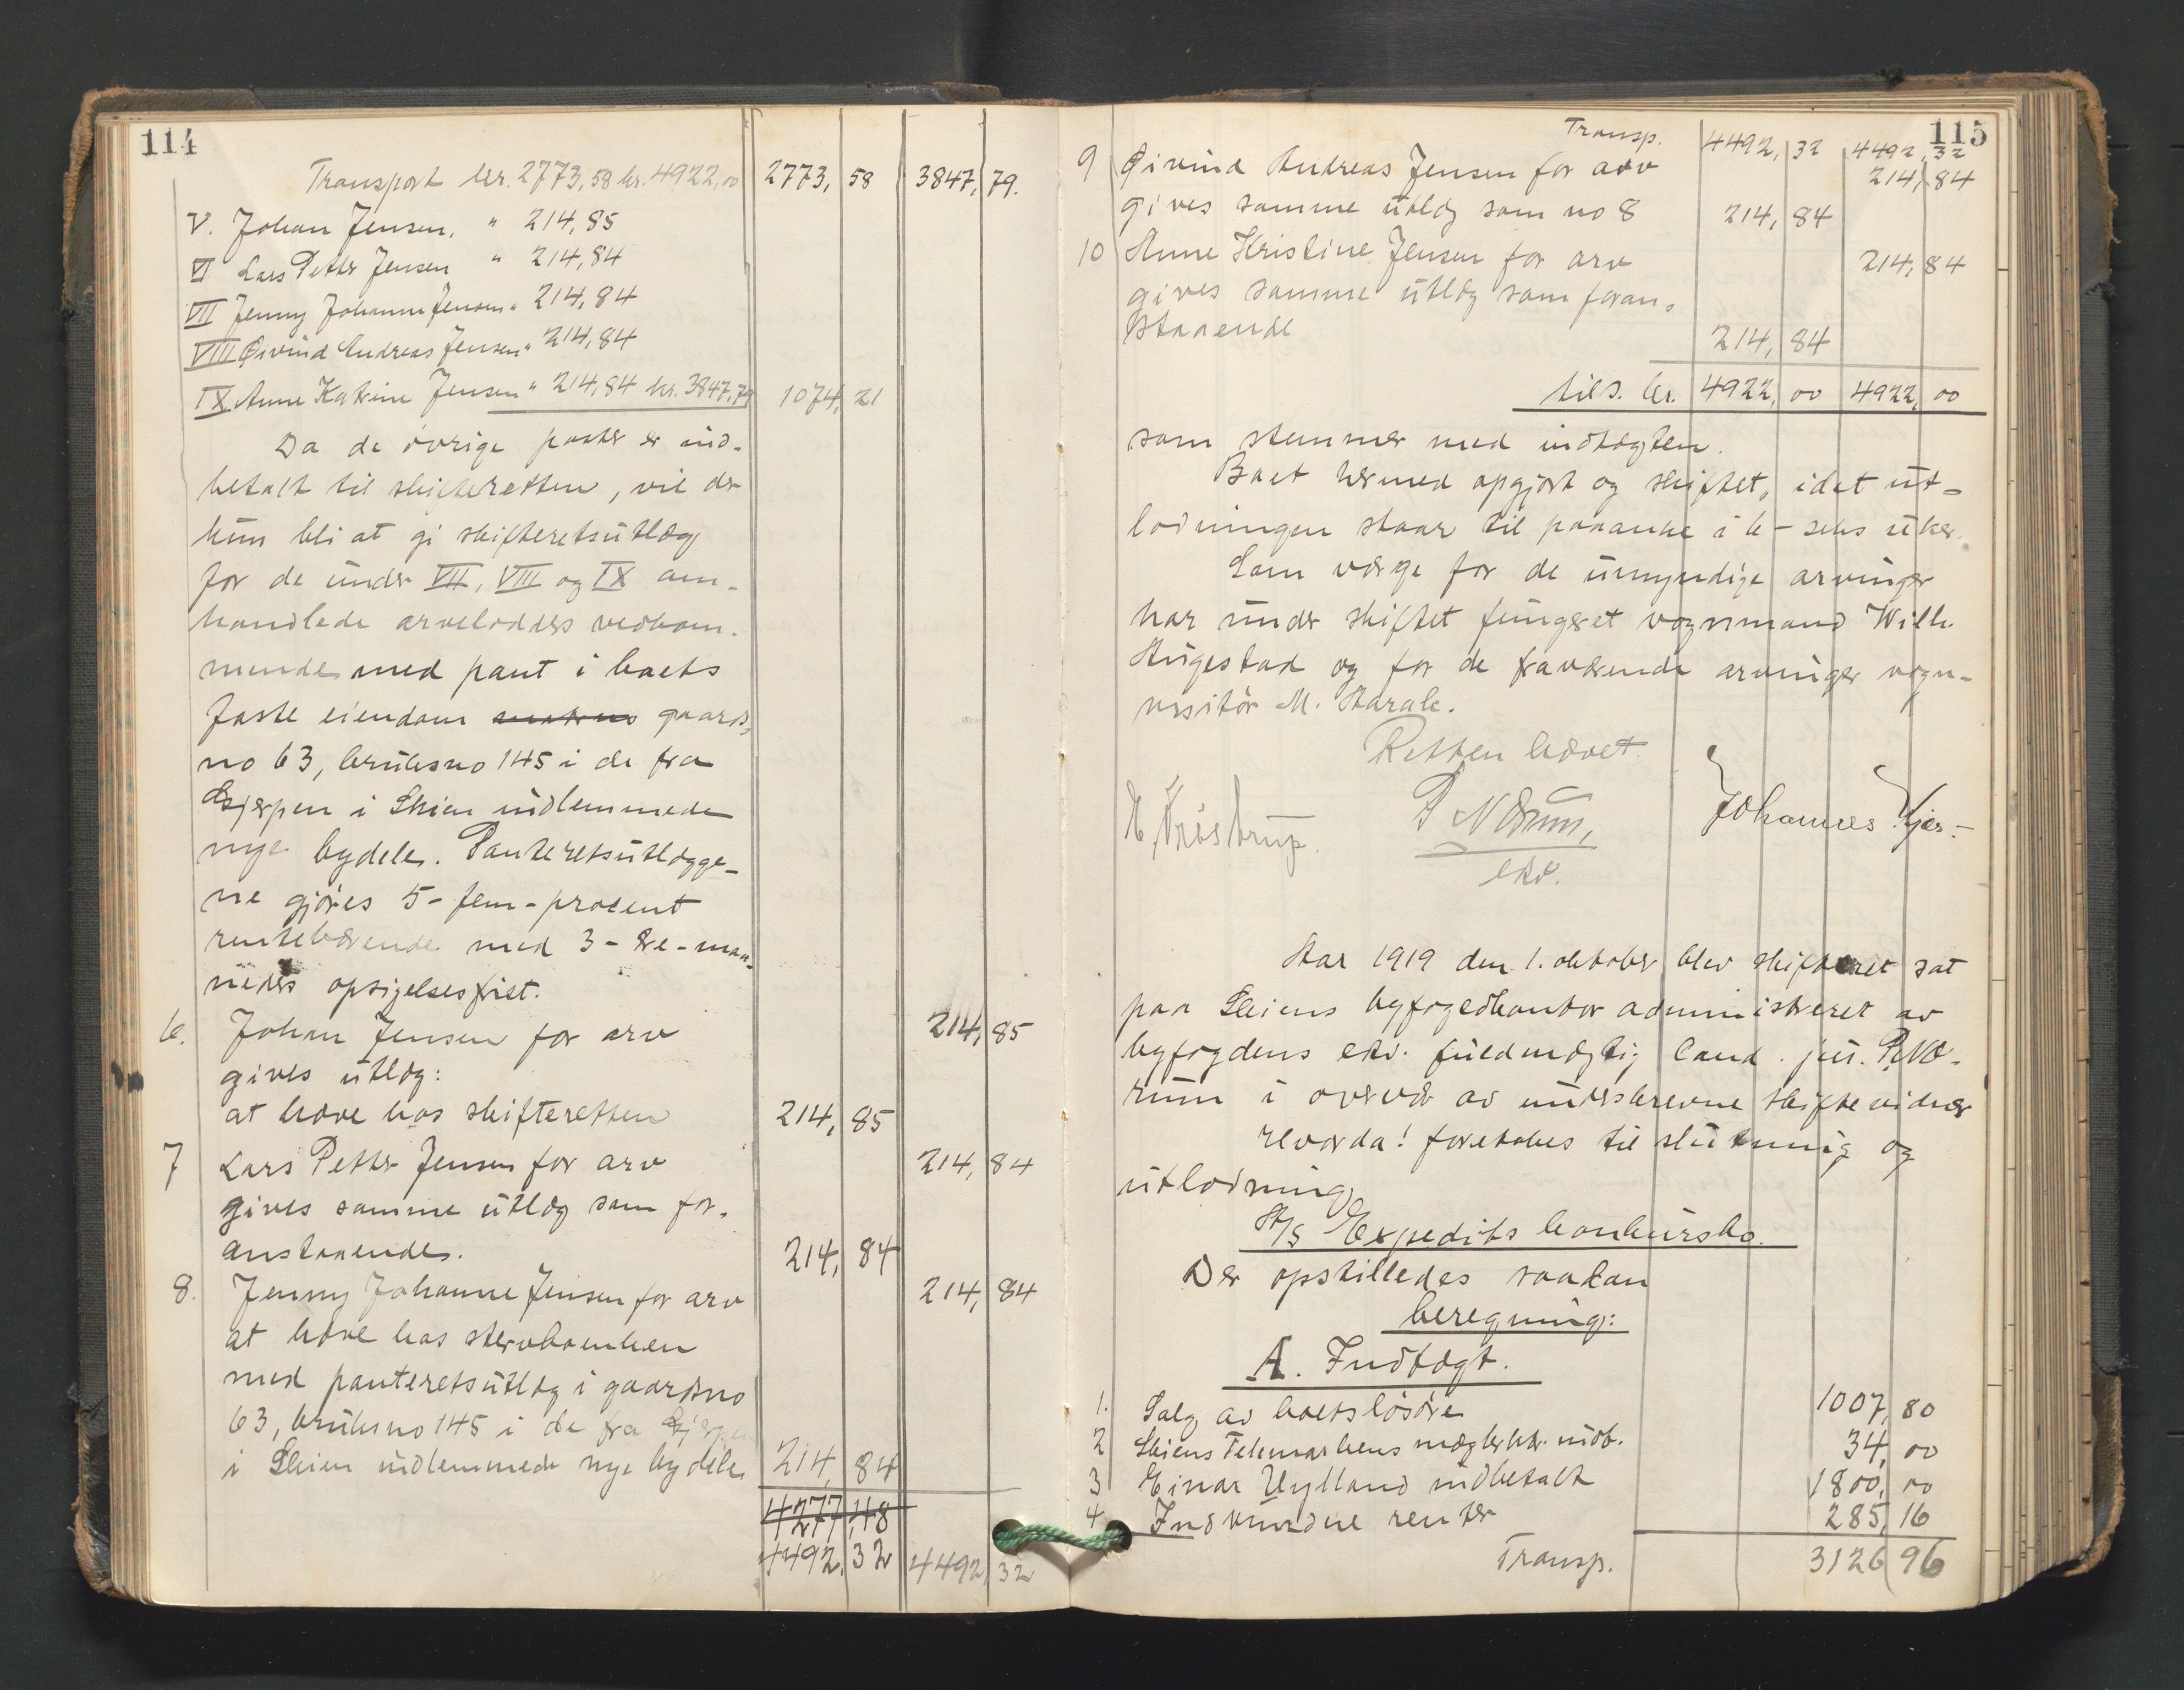 114
Transport kr. 2773,58 kr. 4922,00 2773,58 3847,79.
V. Johan Jensen, " 214,85
VI Lars Petter Jensen " 214,84
VII Jenny Johanne Jensen " 214,84
VIII Øivind Andreas Jensen " 214,84
IX Anne Katrine Jensen " 214,84 kr. 3847,79 1074,21
Da de øvrige poster er ind-
betalt til skifteretten, vil der
kun bli at gi skifteretsutlæg
for de under VII, VIII og IX om-
handlede arvelodders vedkom-
mende med pant i boets
faste eiendom gaards-
no 63, bruksno 145 i de fra
Gjerpen i Skien indlemmede
nye bydele. Panteretsutlægge-
ne gjøres 5-fem-procent
rentebærende med 3-tre-maa-
neders opsigelsesfrist.
6. Johan Jensen for arv 214,85
gives utlæg:
at hæve hos skifteretten 214,85
7 Lars Petter Jensen for arv 214,84
gives samme utlæg som for-
anstaaende. 214,84
8. Jenny Johanne Jensen for arv 214,84
at hæve hos stervboenken
med panteretsutlæg i gaardsno
63, bruksno 145 i de fra Gjerpen
i Skien indlemmede nye bydele 214,84
4277,48
4492,32 4492,32
115
Transp. 4492,32 4492,32
9 Øivind Andreas Jensen for arv 214,84
gives samme utlæg som no 8 214,84
10 Anne Kristine Jensen for arv 214,84
gives samme utlæg som foran-
staaende 214,84
tils. kr. 4922,00 4922,00
som stemmer med indtægten.
Boet hermed opgjort og skiftet, idet ut-
lodningen staar til paaanke i 6-seks uker.
Som værge for de umyndige arvinger
har under skiftet fungeret vognmand Wilh.
Stugestad og for de fraværende arvinger vogn-
visitør M. Harale.
Retten hævet.
P Nærum,
ekv.
Johannes Kjær.-
Aar 1919 den 1. oktober blev skifteret sat
paa Skiens byfogedkontor administreret av
byfogdens ekv. fuldmægtig cand. jur. P. Næ-
rum i overvær av underskrevne skiftevidner
hvorda! foretokes til slutning og
utlodning
A/S Expedits konkursbo.
Der opstilledes saadan
beregning:
A. Indtægt.
1. Salg av boets løsøre 1007,80
2 Skiens Telemarkens mæglerktr. indb. 34,00
3 Einar Uylland indbetalt 1800,00
4 Indvundne renter 285,16
Transp. 3126,96